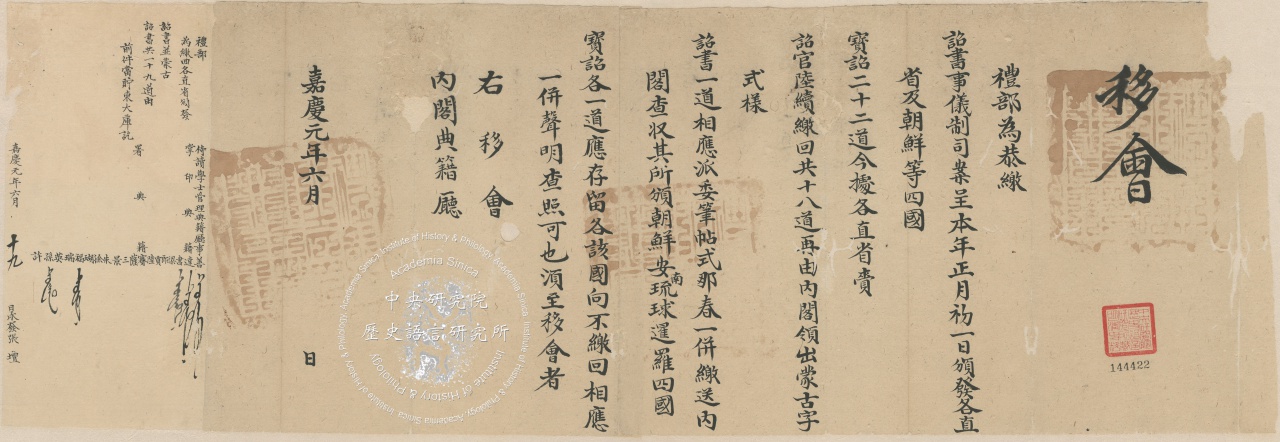 移會
禮部為恭繳
詔書事儀制司案呈本年正月初一日頒發各直
省及朝鮮等四國
寶詔二十二道今據各直省賫
詔官陸續繳回共十八道再由內閣領出蒙古字
式樣
詔書一道相應派委筆帖式那春一併繳送內
閣查收其所頒朝鮮安南琉球暹羅四國
寶詔各一道應存留各該國向不繳回相應
一併聲明查照可也須至移會者
右移會
內閣典籍廳
嘉慶元年六月 日
禮部
為繳回各直省頒發
詔書並蒙古
詔書共一十九道由
前件當貯東大庫訖
侍讀學士管理典籍廳事善
掌印典籍
署典籍
嘉慶元年六月 十九
144422
中央研究院
歷史語言研究所
Academia Sinica
Institute of History & Philology